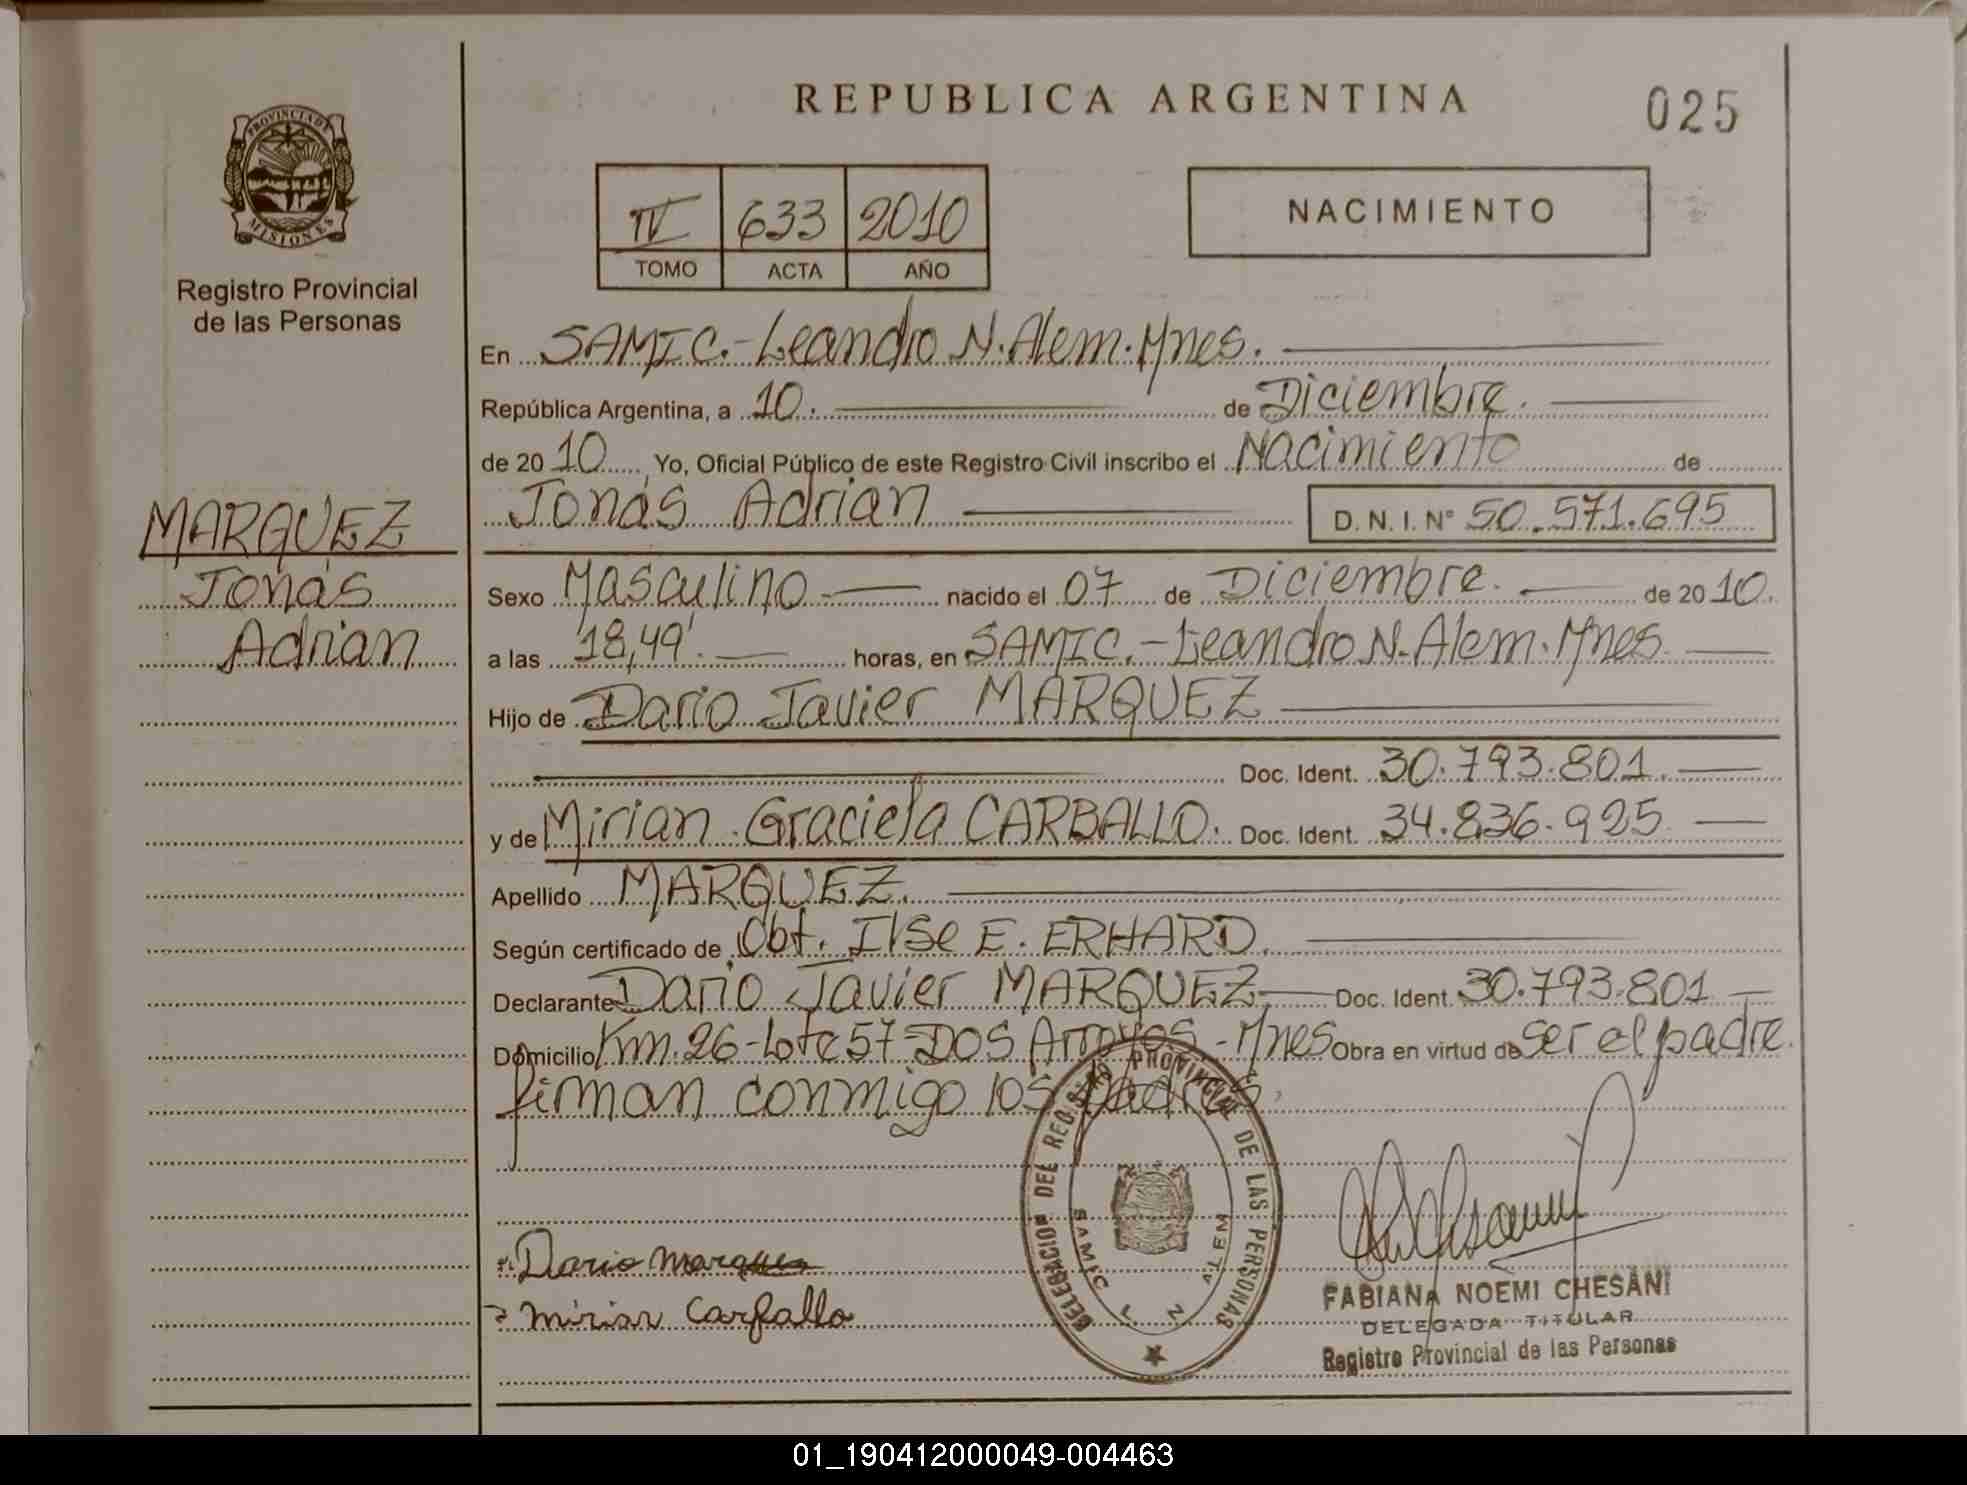 REPUBLICA ARGENTINA
025
PROVINCIA DE
MISIONES
Registro Provincial
de las Personas
IV 633 2010
TOMO ACTA AÑO
NACIMIENTO
En SAMIC.-Leandro N. Alem. Mnes.
República Argentina, a 10. de Diciembre.
de 20 10 Yo, Oficial Público de este Registro Civil inscribo el Nacimiento de
Jonás Adrian D. N. I. Nº 50.571.695
MARQUEZ
Jonás
Adrian
Sexo Masculino nacido el 07 de Diciembre. de 20 10.
a las 18,49'. horas, en SAMIC.-Leandro N. Alem. Mnes
Hijo de Dario Javier MARQUEZ
Doc. Ident. 30.793.801.
y de Mirian Graciela CARBALLO. Doc. Ident. 34.836.925
Apellido MARQUEZ.
Según certificado de Obt. Ilse E. ERHARD.
Declarante Dario Javier MARQUEZ Doc. Ident. 30.793.801
Domicilio Km. 26-Lote 57-DOS Arroyos-Mnes Obra en virtud de ser el padre.
firman conmigo los padres.
DELEGACION DEL REGISTRO PROVINCIAL DE LAS PERSONAS
SAMIC L N ALEM
Dario Marquez
Mirian Carballo
FABIANA NOEMI CHESANI
DELEGADA TITULAR
Registro Provincial de las Personas
01_190412000049-004463